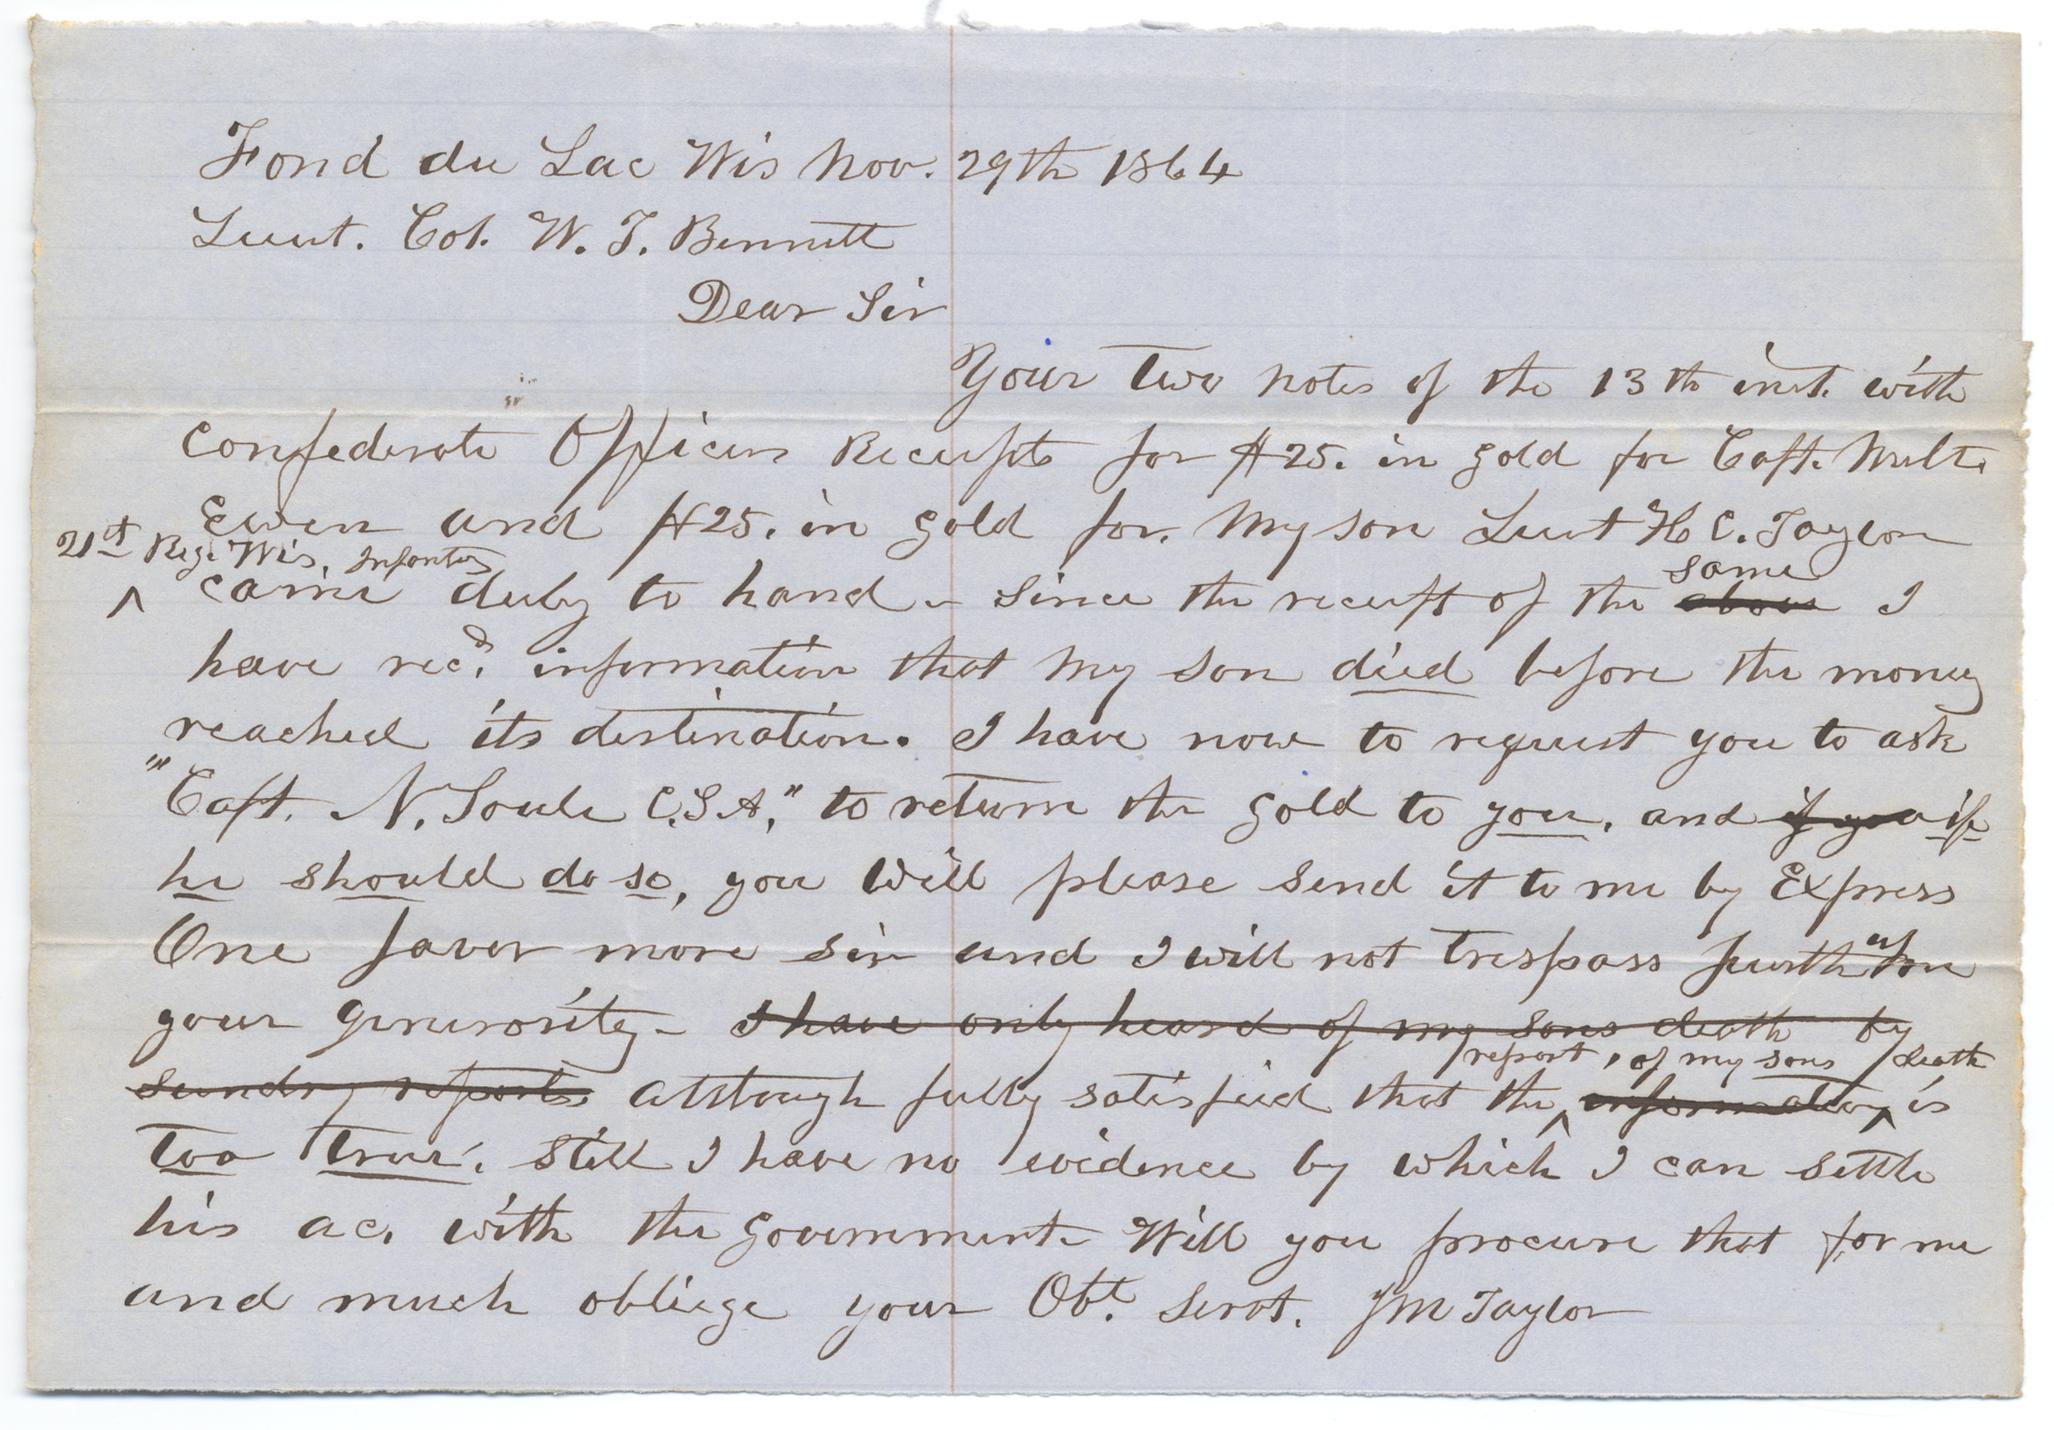 Fond du Lac Wis Nov. 29th 1864
Lieut. Col. W. T. Bennett
Dear Sir
Your Two notes of the 13th inst. with
Confederate Officers Receipts for $25. in gold for Capt. Milt.
Ewen and $25. in gold for. my son Lieut H C. Taylor
21st Reg. Wis. Infantry
same
^ came duly to hand - Since the receipt of the above I
have recd. information that my son died before the money
reached its destination. I have now to request you to ask
"Capt. N. Soule C.S.A." to return the gold to you, and if you if
he should do so, you will please send it to me by Express
One favor more sir and I will not trespass further upon
your generosity - I have only heard of my sons death by
report, of my sons death
sundry reports although fully satisfied that the ^ information ^ is
too true. Still I have no evidence by which I can settle
his ac. with the government - Will you procure that for me
and much obliege your Obt. Servt. J M Taylor